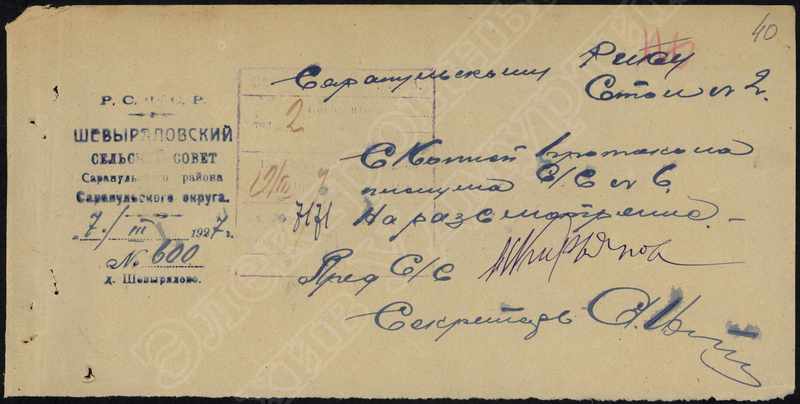 40
Р.С.Ф.С.Р.
ШЕВЫРЯЛОВСКИЙ
СЕЛЬСКИЙ СОВЕТ
Сарапульского района
Сарапульского округа.
"7/III 1927 г.
№ 600
д. Шевырялово.
2
12/III
7171
Сарапульскому Рику
Стол № 2.
С копией протокола
пленума С/С № 6.
На разсмотрение. -
Пред С/С
Секретарь